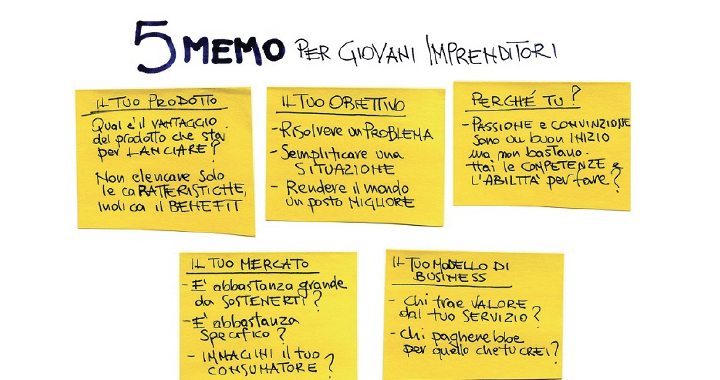 5 MEMO PER GIOVANI IMPRENDITORI
IL TUO PRODOTTO
Qual è il VANTAGGIO
del prodotto che stai
per LANCIARE?
Non elencare solo
le caRATTERISTICHE,
indica il BENEFIT
IL TUO OBIETTIVO
- Risolvere un PROBLEMA
- Semplificare una
SITUAZIONE
- Rendere il mondo
un posto MIGLIORE
PERCHÉ TU?
- PASSIONE e CONVINZIONE
sono un buon INIZIO
ma non bastano.
Hai le COMPETENZE e
L'ABILITÀ per fare?
IL TUO MERCATO
- E' abbastanza grande
da SOSTENERTI?
- E' abbastanza
SPECIFICO?
- IMMAGINI il tuo
CONSUMATORE?
IL TUO MODELLO DI
BUSINESS
- Chi trae VALORE
dal tuo SERVIZIO?
- Chi pagherebbe
per quello che tu CREI?